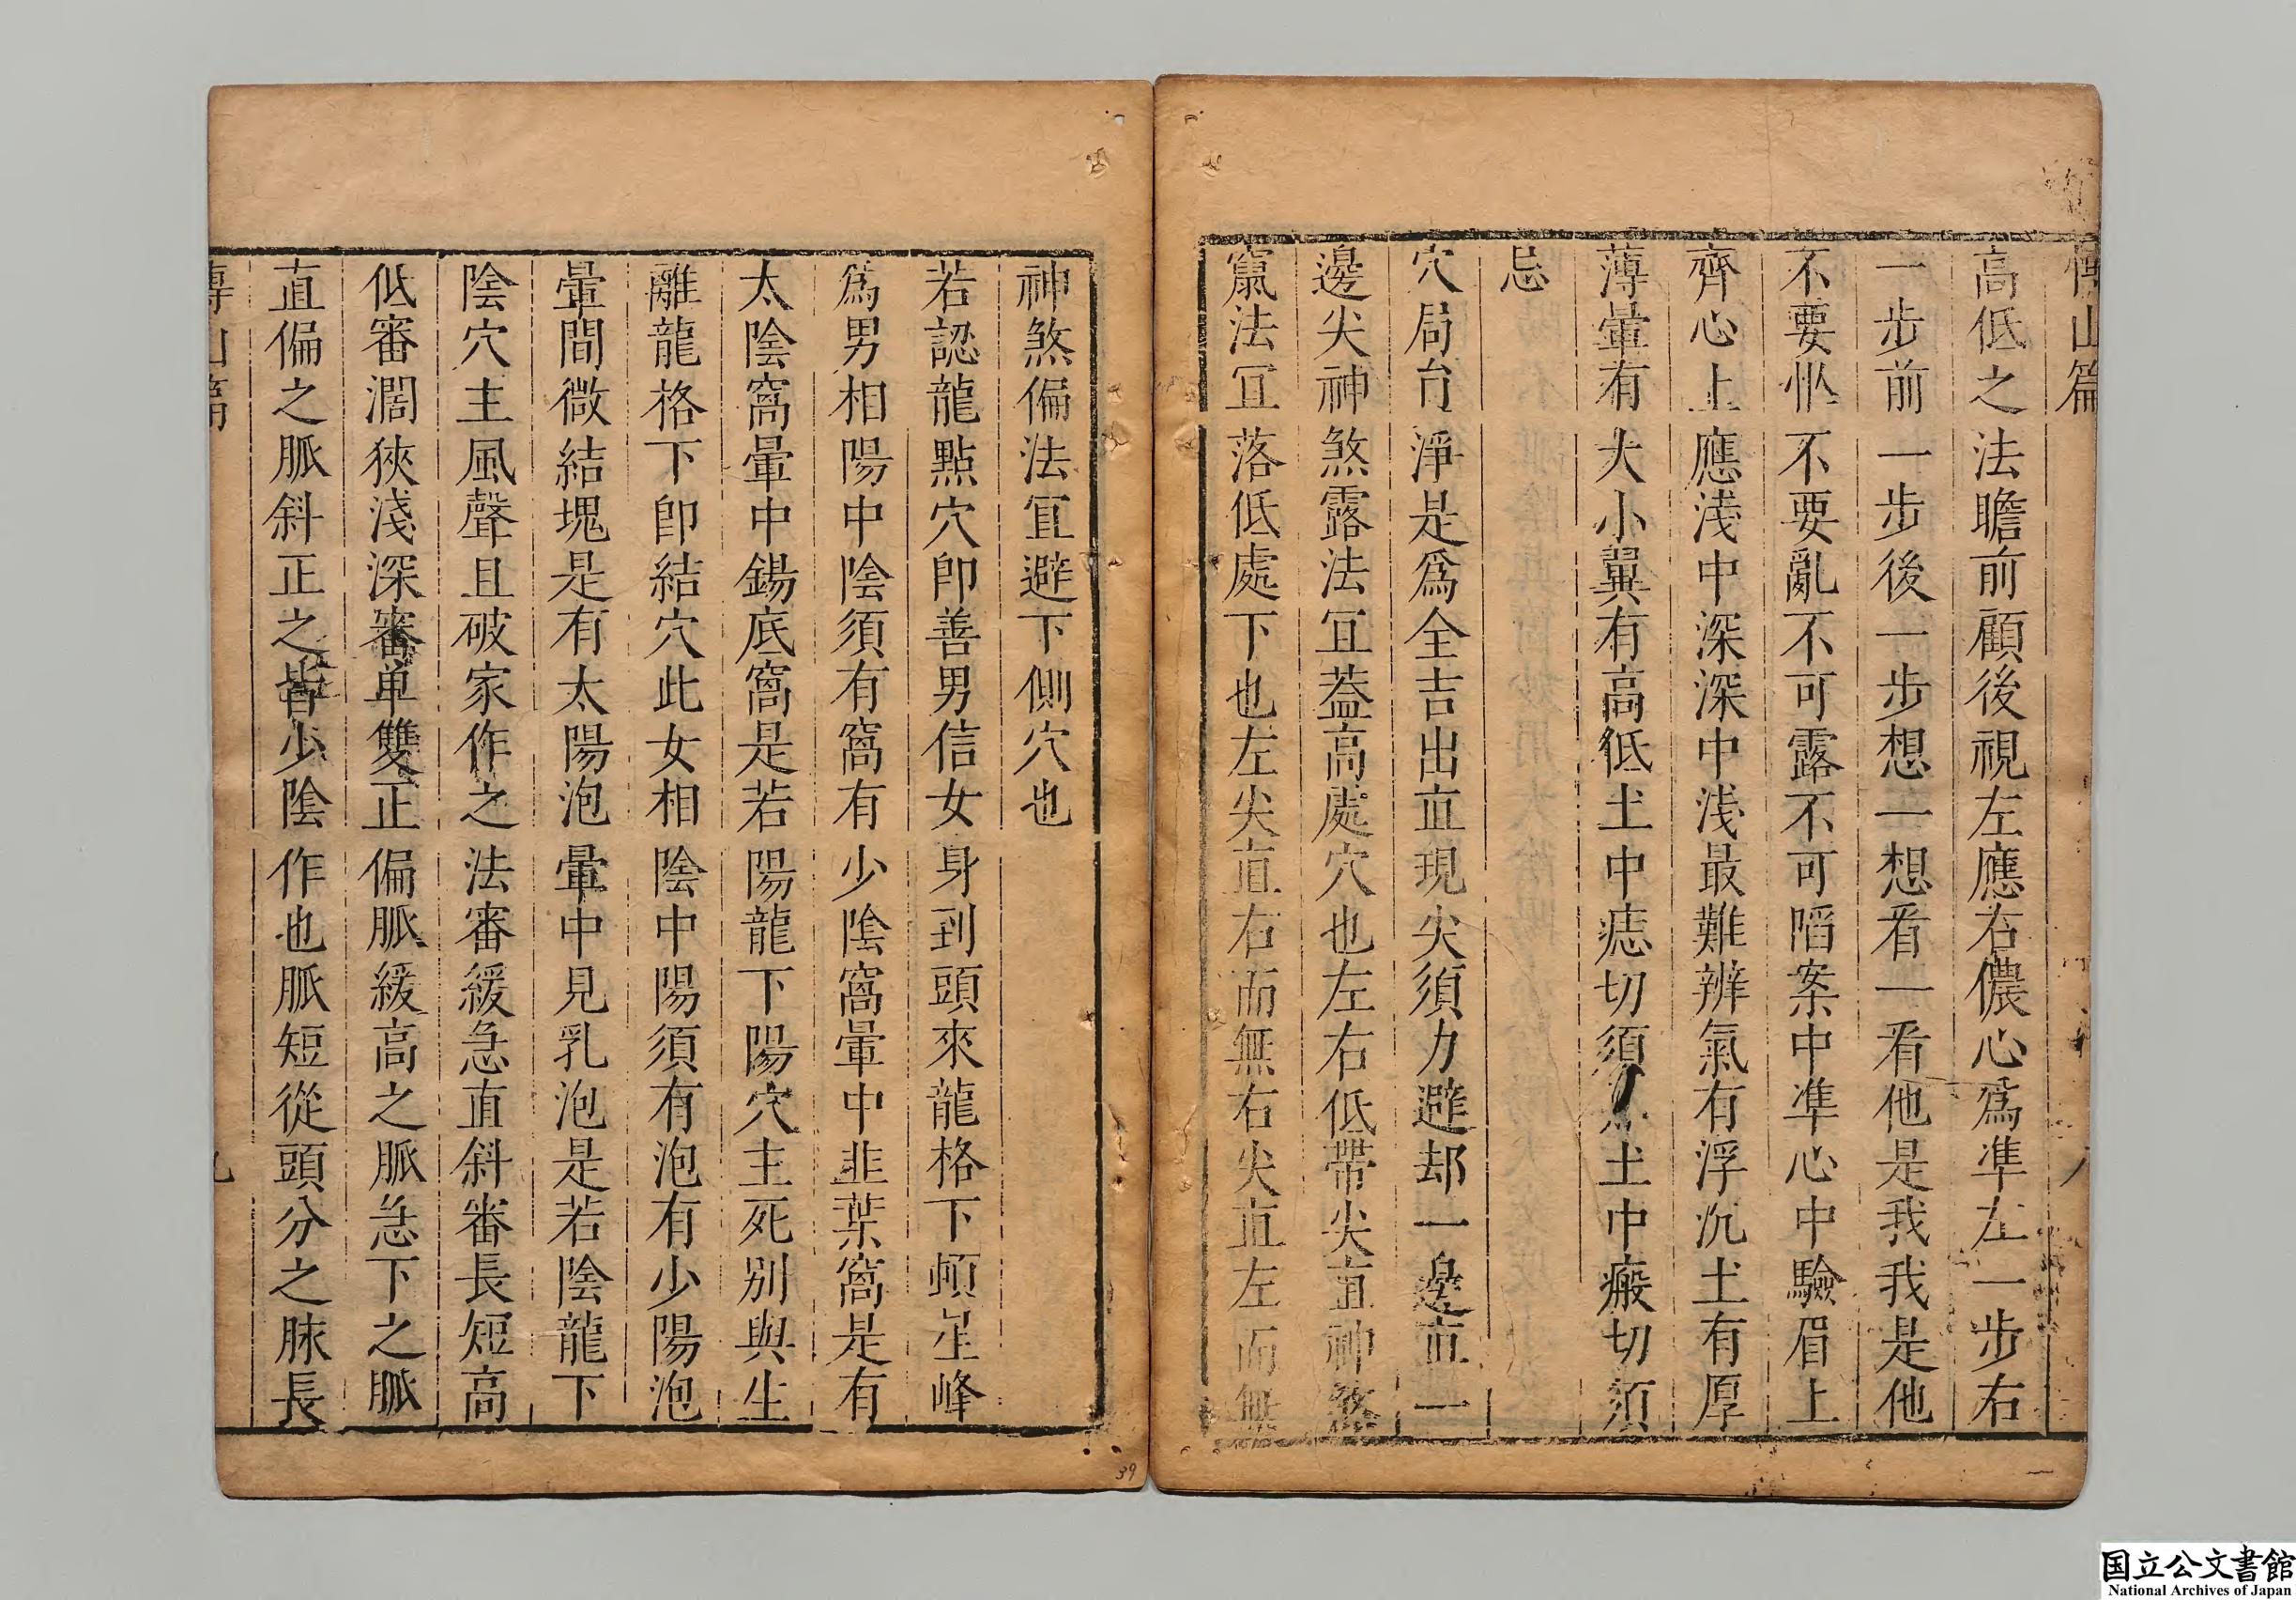 山篇
高低之法瞻前顧後視左應右儂心爲準左一步右
一步前一步後一步想一想看一看他是我我是他
不要怭不要亂不可露不可䧟案中準心中驗眉上
齊心上應淺中深深中淺最難辨氣有浮沉土有厚
薄暈有大小翼有高低土中痣切須土中瘢切須
忌
穴局台淨是爲全吉出直現尖須力避却一邊直一
邊尖神煞露法宜蓋高處穴也左右低帶尖直神煞
竄法宜落低處下也左尖直右而無右尖直左而無
神煞偏法宜避下側穴也
若認龍點穴卽善男信女身到頭來龍格下頓星峰
爲男相陽中陰須有窩有少陰窩暈中韭葉窩是有
太陰窩暈中鍚底窩是若陽龍下陽穴主死別與生
離龍格下卽結穴此女相陰中陽須有泡有少陽泡
暈間微結塊是有太陽泡暈中見乳泡是若陰龍下
陰穴主風聲且破家作之法審緩急直斜審長短高
低審濶狹淺深審单雙正偏脈緩高之脈急下之脈
直偏之脈斜正之皆少陰作也脈短從頭分之脉長
專山篇
九
39
国立公文書館
National Archives of Japan